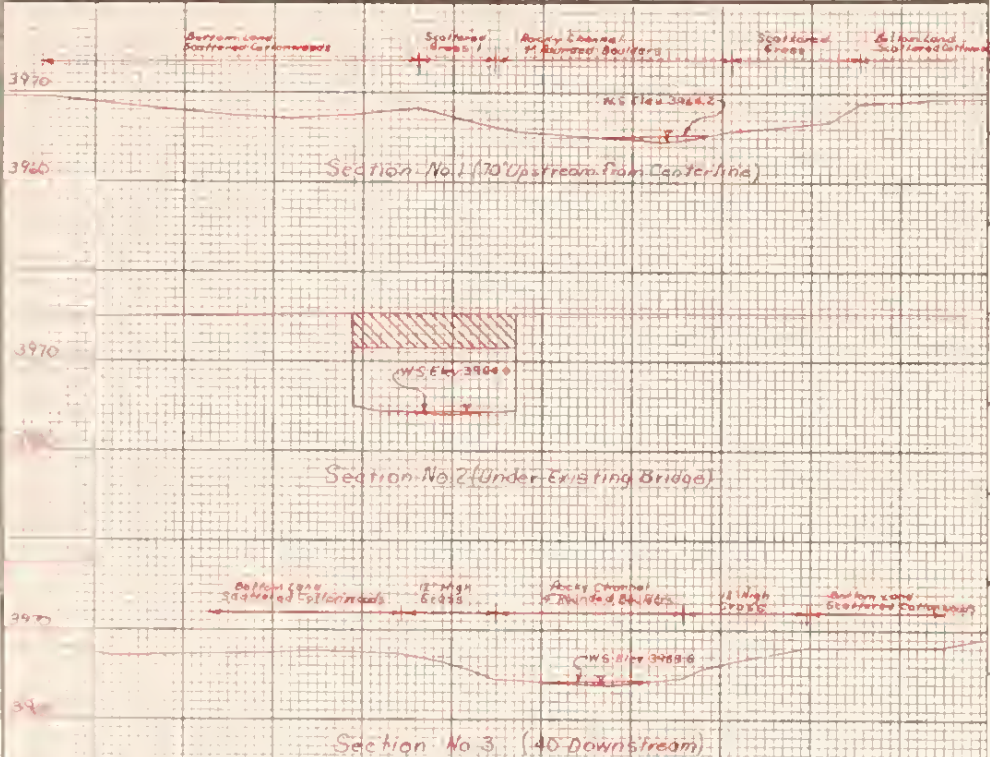 Bottom Land
Scattered Cottonwoods
Scattered
Grass
Rocky Channel
Rounded Boulders
Scattered
Grass
Bottom Land
Scattered Cottonwoods
3970
W.S. Elev 3964.2
3960
Section No. 1 (70' Upstream from Centerline)
3970
W S Elev 3964.0
Section No. 2 (Under Existing Bridge)
Bottom Land
Scattered Cottonwoods
12" High
Grass
Rocky Channel
Rounded Boulders
12" High
Grass
Bottom Land
Scattered Cottonwoods
3970
W S Elev 3963.6
Section No 3 (40 Downstream)